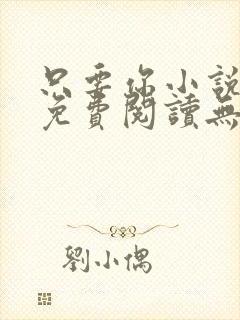 只要你小說
免費閱讀無
劉小偶